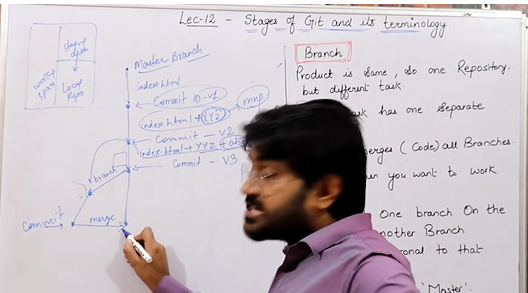 Lec-12 - Stages of Git and its terminology
workspace
staging area
Local Repo
Master Branch
index.html
Commit ID-V1
index.html + XYZ
Commit - V2
index.html + XYZ +
Commit - V3
branch
Commit
merge
Branch
Product is same, so one Repository.
but different task.
has one separate
erges (Code) all Branches
you want to work
One branch On the
nother Branch.
onal to that
'Master'.